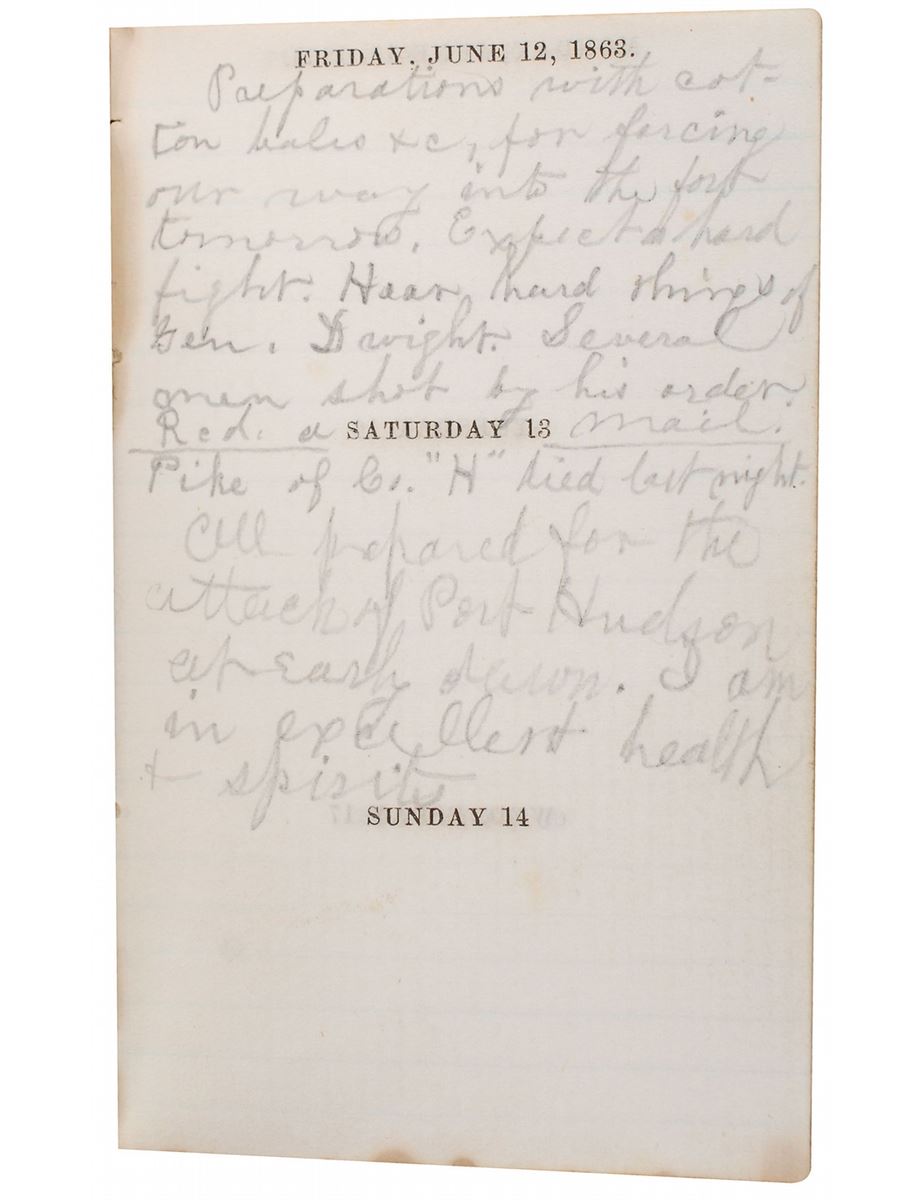 FRIDAY, JUNE 12, 1863.
Preparations with cot-
ton bales &c, for forcing
our way into the fort
tomorrow. Expect a hard
fight. Hear hard things of
Gen. Dwight. Several
men shot by his order.
Rcd. a SATURDAY 13 mail.
Pike of Co. "H" died last night.
All prepared for the
attack of Port Hudson
at early dawn. I am
in excellent health
+ spirits
SUNDAY 14